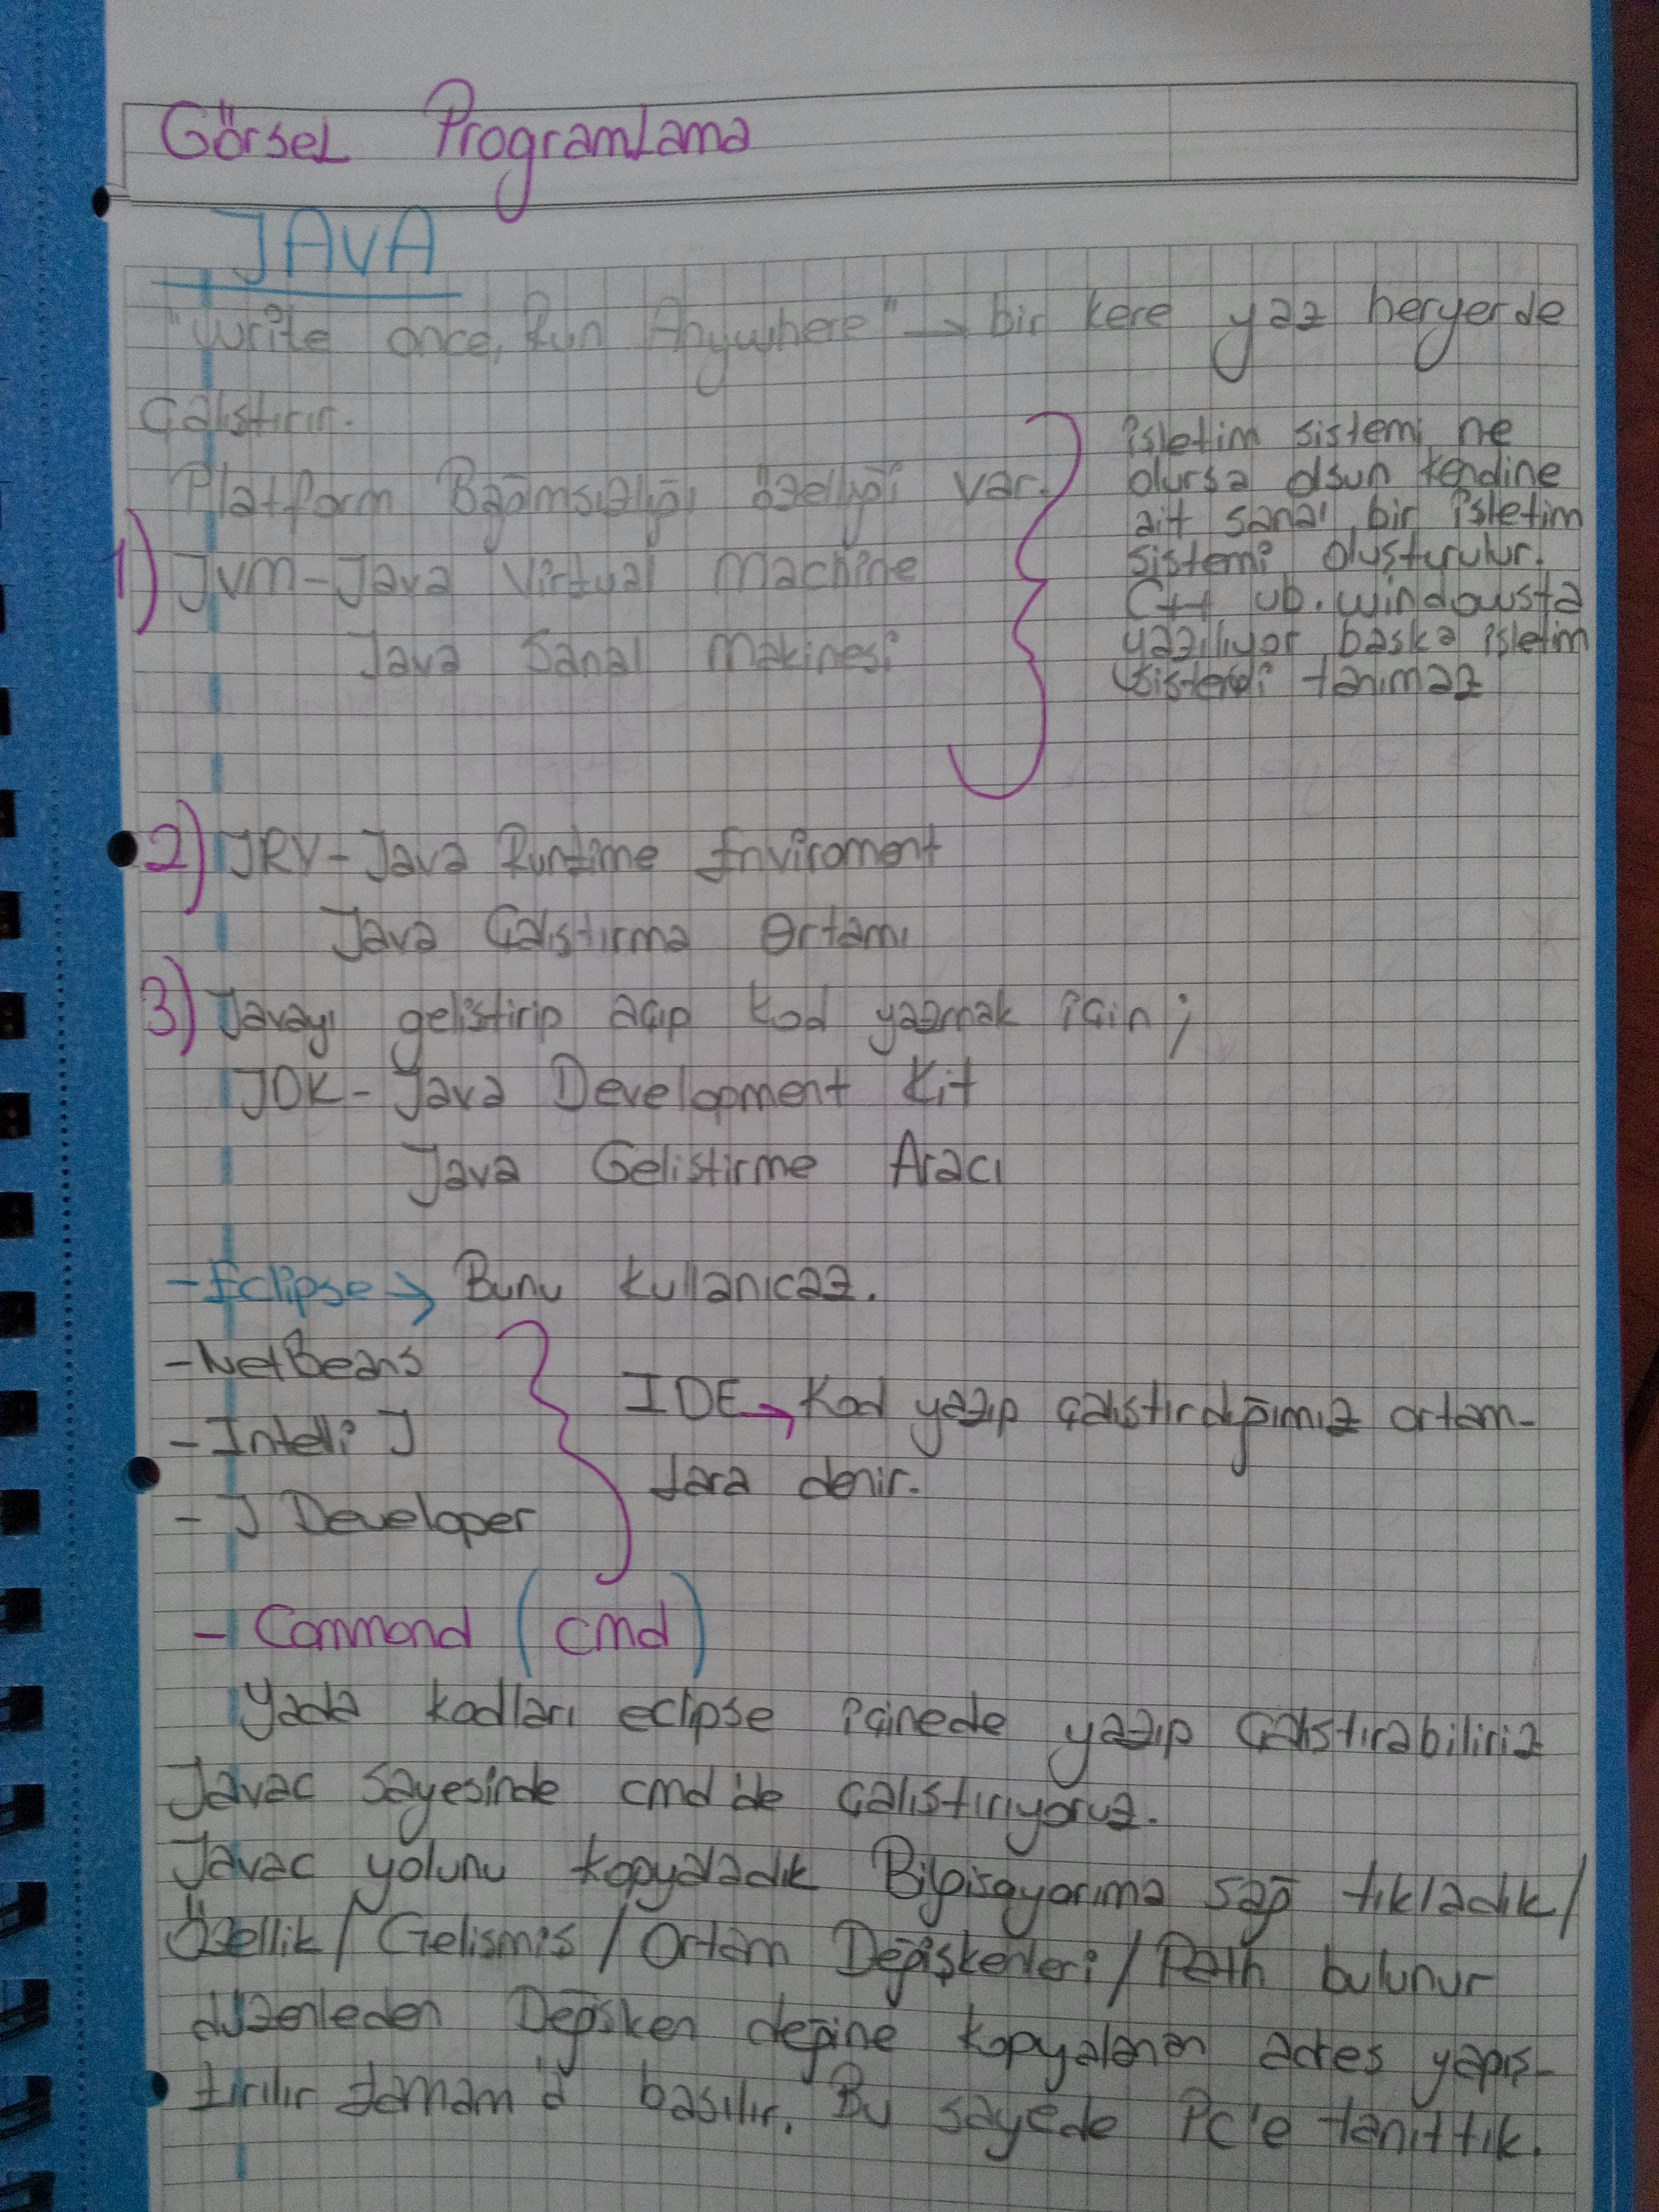 Görsel Programlama
JAVA
"Write once, Run Anywhere" → bir kere yaz heryerde
çalıstırır.
Platform Bağımsızlığı özelliği var.
1) JVM - Java Virtual Machine
Java Sanal Makinesi
işletim sistemi ne
olursa olsun kendine
ait sanal bir işletim
sistemi oluşturulur.
C++ vb. windowsta
yazılıyor baska işletim
sistemi tanımaz
2) JRV - Java Runtime Enviroment
Java Çalıstırma Ortamı
3) Javayı gelistirip açıp kod yazmak için;
JDK - Java Development Kit
Java Gelistirme Aracı
- Eclipse → Bunu kullanıcaz.
- NetBeans
- Intelli J
- J Developer
IDE → Kod yazıp çalıstırdığımız ortam-
lara denir.
- Commond (cmd)
Yada kodları eclipse içinede yazıp çalıstırabiliriz
Javac sayesinde cmd'de çalıstırıyoruz.
Javac yolunu kopyaladık Bilgisayarıma sağ tıkladık/
Özellik/ Gelismis/ Ortam Değişkenleri/ Path bulunur
düzenleden Değisken değine kopyalanan adres yapış-
tırılır tamam'a basılır. Bu sayede Pc'e tanıttık.